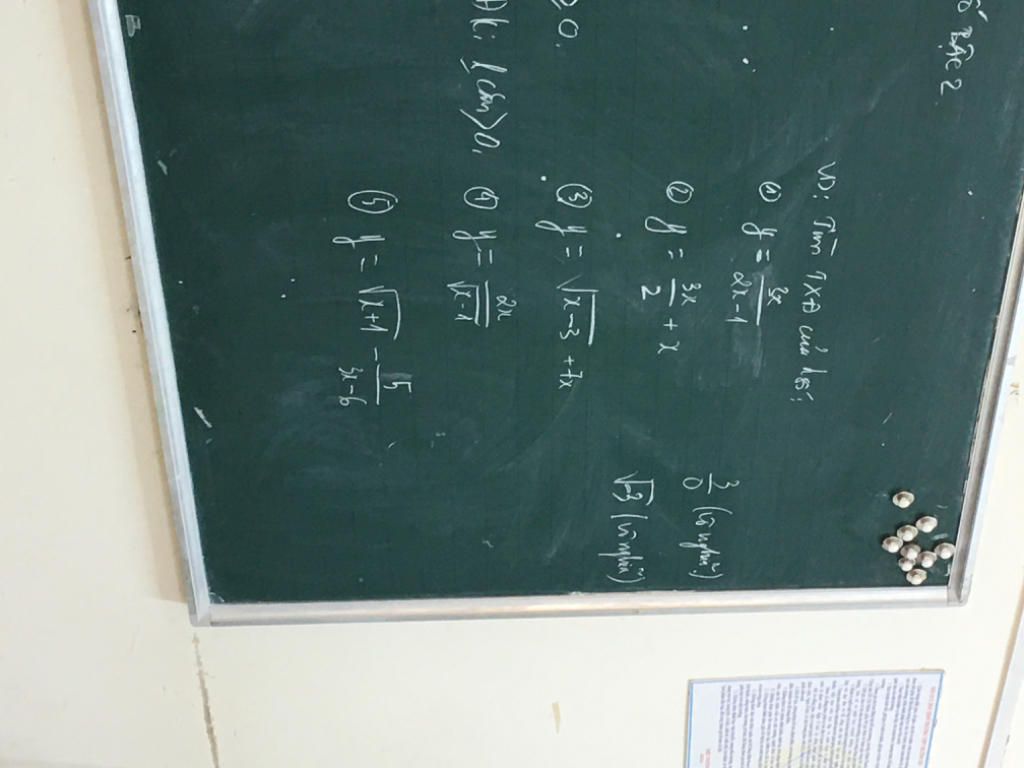 số bậc 2
≥ 0.
ĐK: lcăn > 0.
VD: Tìm TXĐ của h/số:
① y = \frac{3x}{2x-1}
② y = \frac{3x}{2} + x
③ y = \sqrt{x-3} + 7x
④ y = \frac{2x}{\sqrt{x-1}}
⑤ y = \sqrt{x+1} - \frac{5}{3x-6}
\frac{3}{0} (vô nghĩa)
\sqrt{-3} (vô nghĩa)